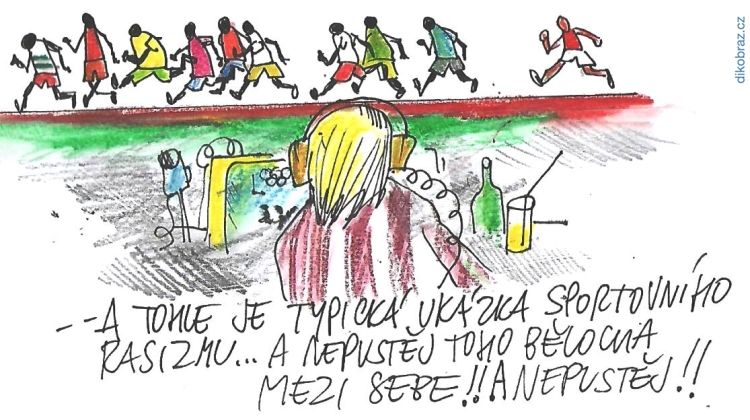 dikobraz.cz
--A TOHLE JE TYPICKÁ UKÁZKA SPORTOVNÍHO
RASIZMU... A NEPUSTĚJ TOHO BĚLOCHA
MEZI SEBE!!! A NEPUSTĚJ!!